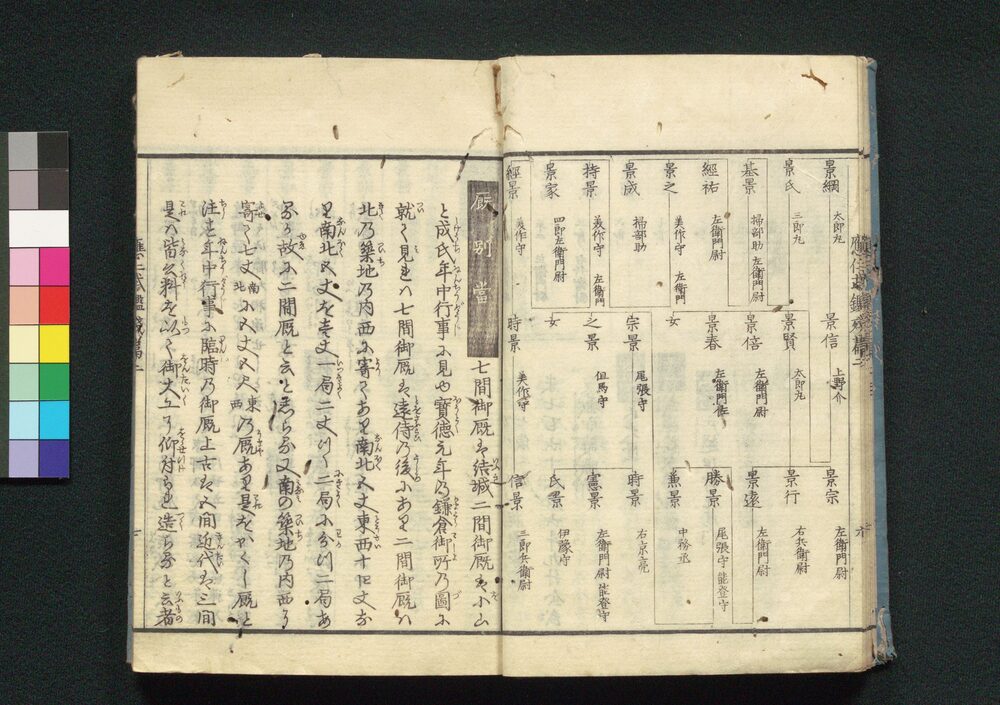 景綱 太郎九
景氏 三郎九
基景 掃部助 左衛門尉
經祐 左衛門尉
景之 美作守 左衛門
景威 掃部助
持景 美作守 左衛門
景家 四郎左衛門尉
經景 美作守
景信 上野介
景賢 太郎九
景倍 左衛門尉
景春 左衛門佐
女
宗景 尾張守
之景 但馬守
女
時景 美作守
景宗 左衛門尉
景行 右兵衛尉
景遠 左衛門尉
勝景 尾張守 能登守
兼景 中務丞
時景 右京亮
憲景 左衛門尉 能登守
氏景 伊豫守
信景 三郎兵衛尉
厩別當 七間御厩は結城二間御厩は小山
と成氏年中行事に見ゆ寶徳元年乃鎌倉御所乃圖に
就て見れハ七間御厩は遠侍乃後にあり二間御厩ハ
北乃築地乃内西に寄てあり南北五丈東西十四丈な
り南北五丈を壹丈一局二丈つゝ二局に分け二局あ
る故に二間厩と云としらる又南の築地乃内西に
寄て七丈南北に五丈五尺東西乃厩あり是をかくし厩と
注す年中行事に臨時乃御厩上古は五間近代は三間
是ハ皆公料を以て御大工に仰付られ造らると云者